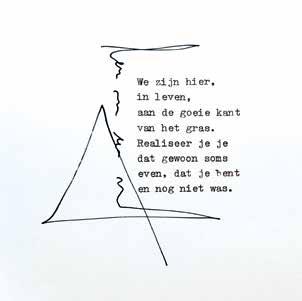 We zijn hier,
in leven,
aan de goeie kant
van het gras.
Realiseer je je
dat gewoon soms
even, dat je bent
en nog niet was.